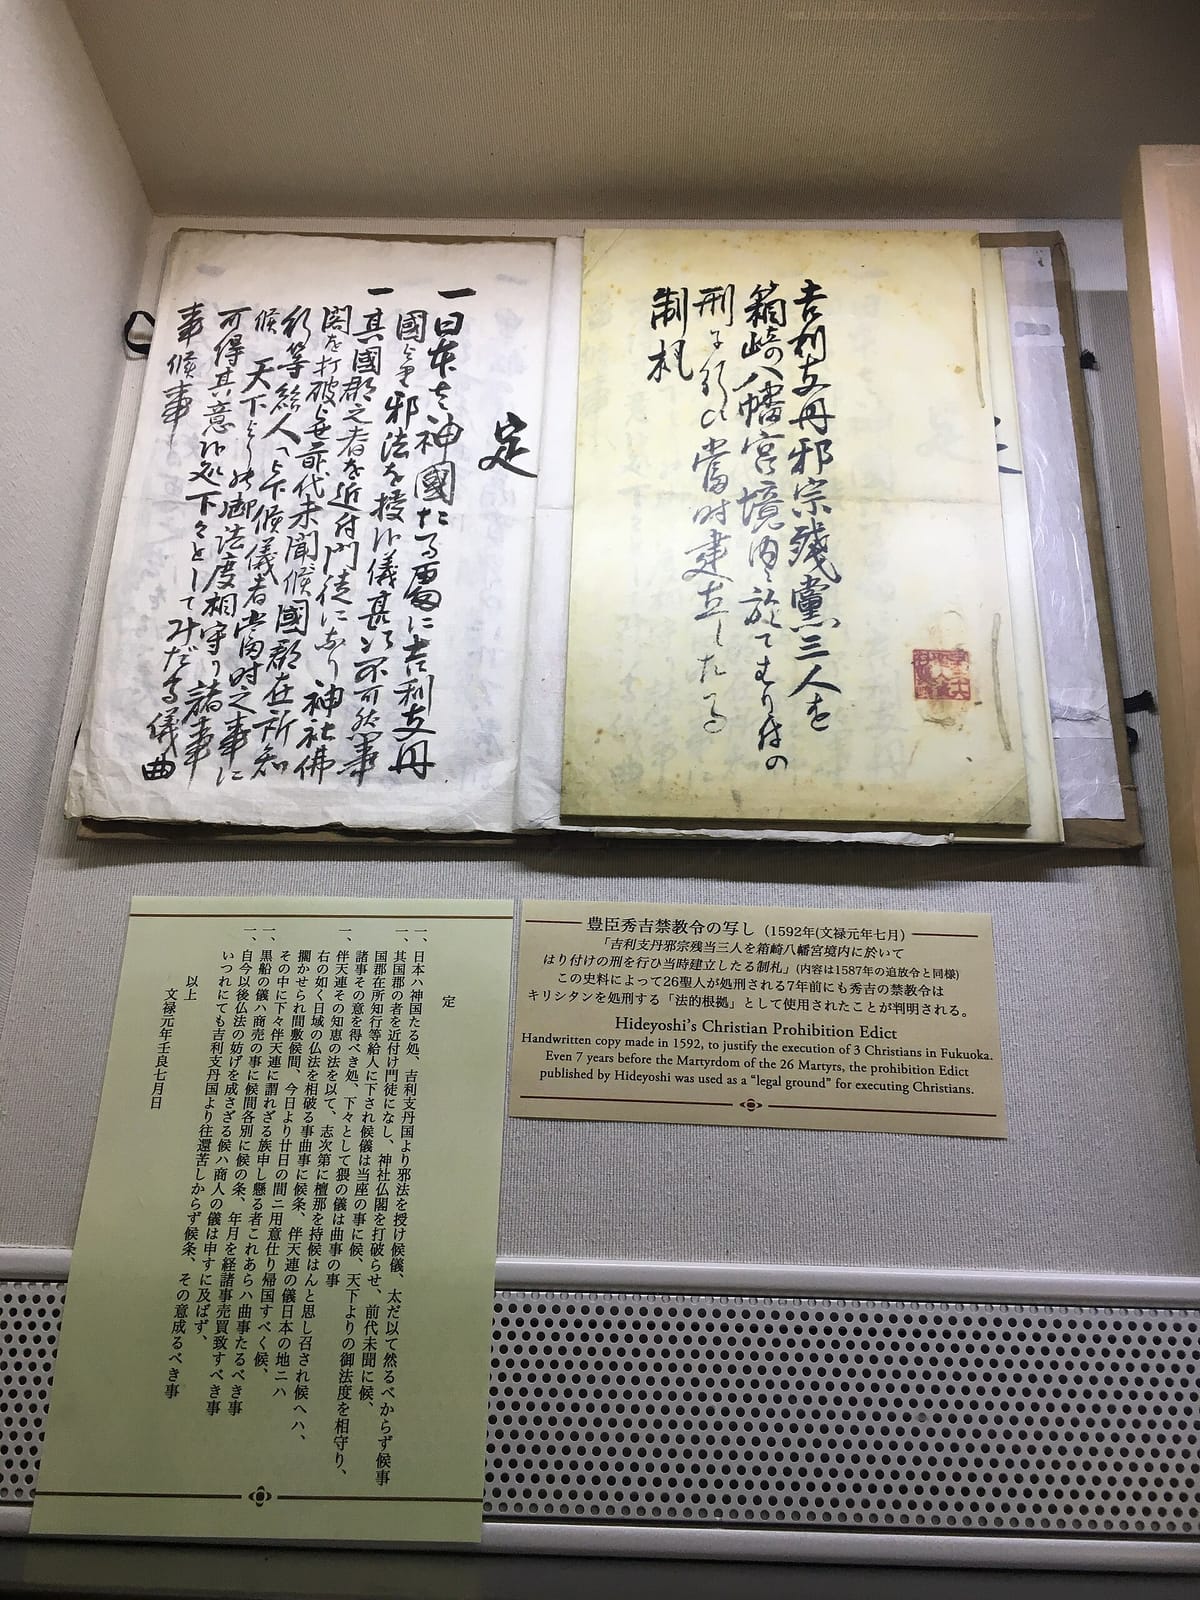 吉利支丹邪宗残黨三人を
箱崎八幡宮境内に於てはり付の
刑に行ひ當時建立したる
制札
定
一 日本は神國たる處に吉利支丹
國より邪法を授候儀甚以不可然事
一 其國郡之者を近付門徒になし神社佛
閣を打破らせ前代未聞候國郡在所知
行等給人に下候儀者當時之事に
候天下よりの御法度相守り諸事
可得其意候処下々としてみだる儀曲
事候事
定
一、日本ハ神国たる処、吉利支丹国より邪法を授け候儀、太だ以て然るべからず候事
一、其国郡の者を近付け門徒になし、神社仏閣を打破らせ、前代未聞に候、
国郡在所知行等給人に下され候儀は当座の事に候、天下よりの御法度を相守り、
諸事その意を得べき処、下々として猥の儀は曲事の事
一、伴天連その知恵の法を以て、志次第に檀那を持候はんと思し召され候へハ、
右の如く日域の仏法を相破る事曲事に候条、伴天連の儀日本の地ニハ
擱かせられ間敷候間、今日より廿日の間ニ用意仕り帰国すべく候、
その中に下々伴天連に謂れざる族申し懸る者これあらハ曲事たるべき事
一、黒船の儀ハ商売の事に候間各別に候の条、年月を経諸事売買致すべき事
一、自今以後仏法の妨げを成さざる候ハ商人の儀は申すに及ばず、
いつれにても吉利支丹国より往還苦しからず候条、その意成るべき事
以上
文禄元年壬良七月日
豊臣秀吉禁教令の写し（1592年(文禄元年七月）
「吉利支丹邪宗残当三人を箱崎八幡宮境内に於いて
はり付けの刑を行ひ当時建立したる制札」(内容は1587年の追放令と同様)
この史料によって26聖人が処刑される7年前にも秀吉の禁教令は
キリシタンを処刑する「法的根拠」として使用されたことが判明される。
Hideyoshi's Christian Prohibition Edict
Handwritten copy made in 1592, to justify the execution of 3 Christians in Fukuoka.
Even 7 years before the Martyrdom of the 26 Martyrs, the prohibition Edict
published by Hideyoshi was used as a "legal ground" for executing Christians.